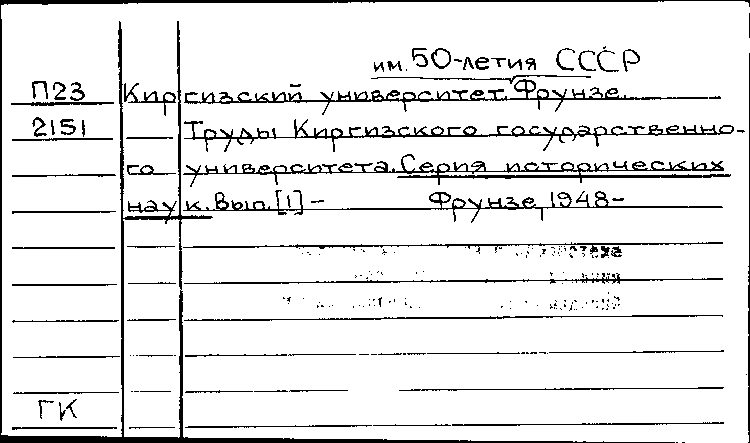 им. 50-летия СССР
П23 Киргизский университет. Фрунзе.
2151 Труды Киргизского государственно-
го университета. Серия исторических
наук. Вып. [1] - Фрунзе, 1948-
ГК